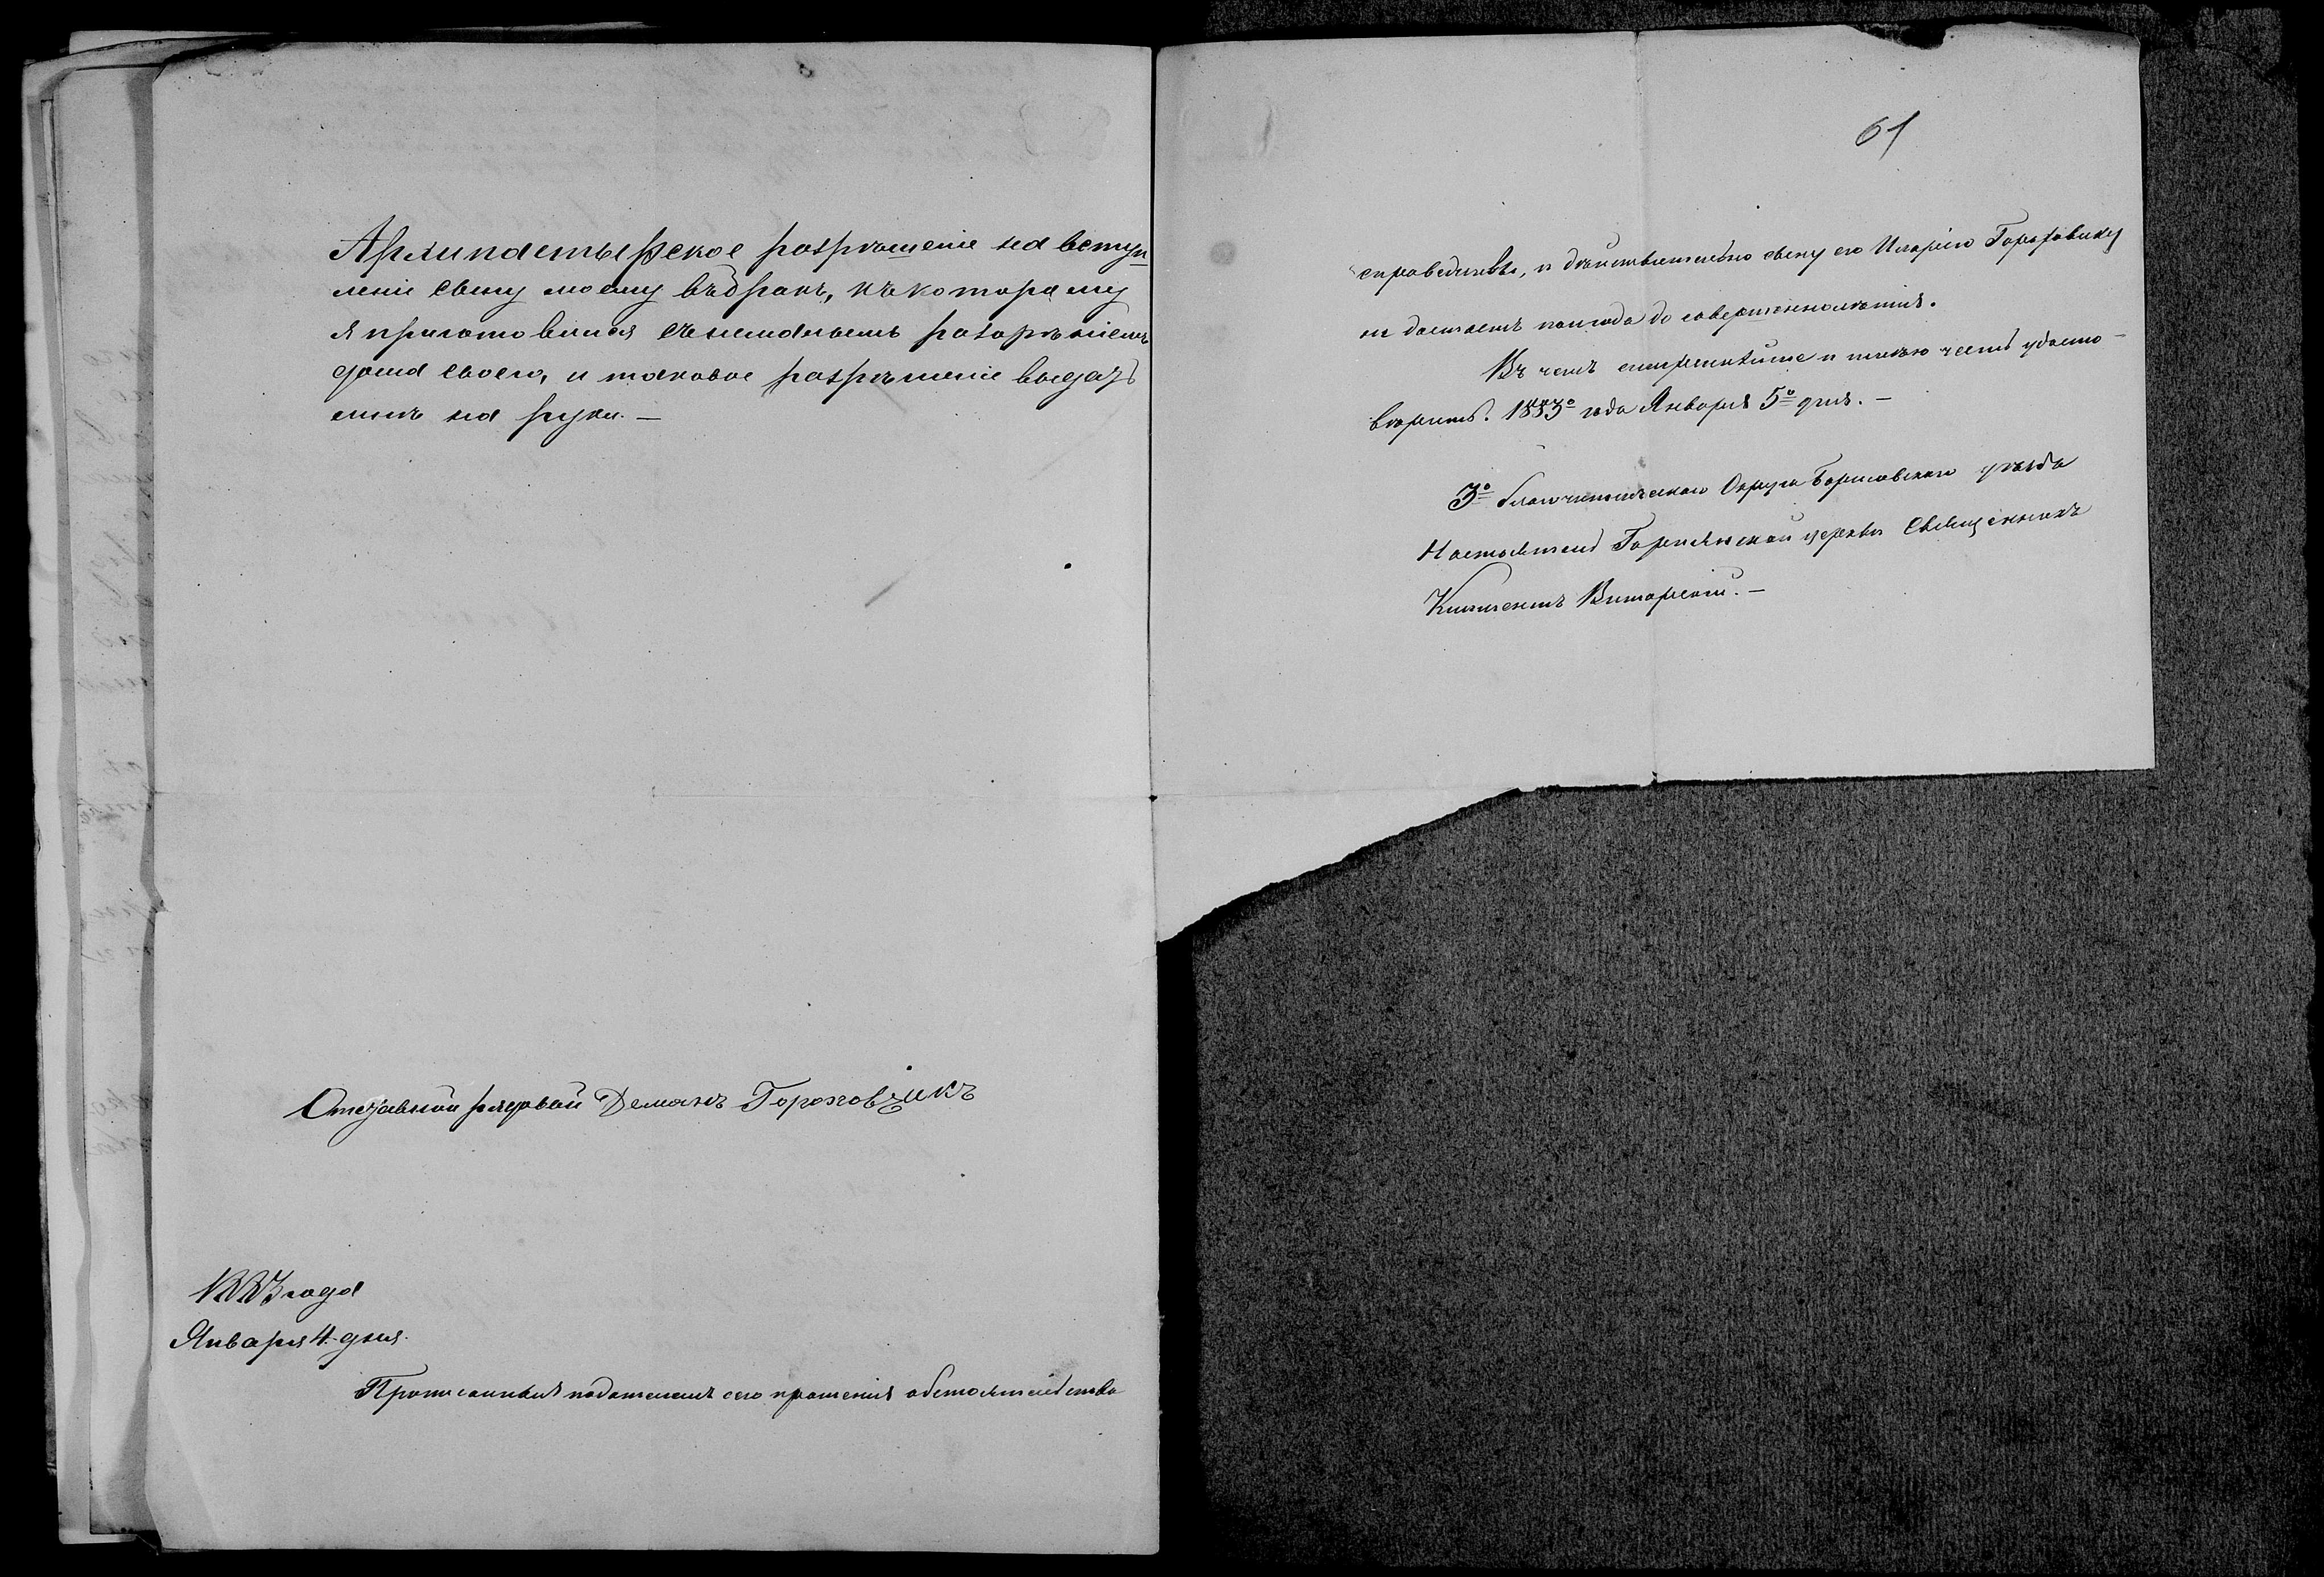 Архипастырское розрѣшеніе на вступ
леніе сыну моему въ бракъ, къ которому
я приготовился съ немалымъ розорѣніемъ
дома своего, и таковое розрѣшеніе выдать
мнѣ на руки. —
Отставной рядовой Демянъ Гороховикъ
1883 года
Января 4 дня.
Прописанныя подателемъ сего прошенія обстоятельства
61
справедливы, и дѣйствительно сыну его Иларію Гороховику
не достаетъ полгода до совершеннолѣтія.
Въ чемъ и имѣю честь удосто-
вѣрить. 1883º года Января 5º дня. —
3º благочинническаго Округа Борисовскаго уѣзда
Настоятель церкви Священникъ
Климентъ —